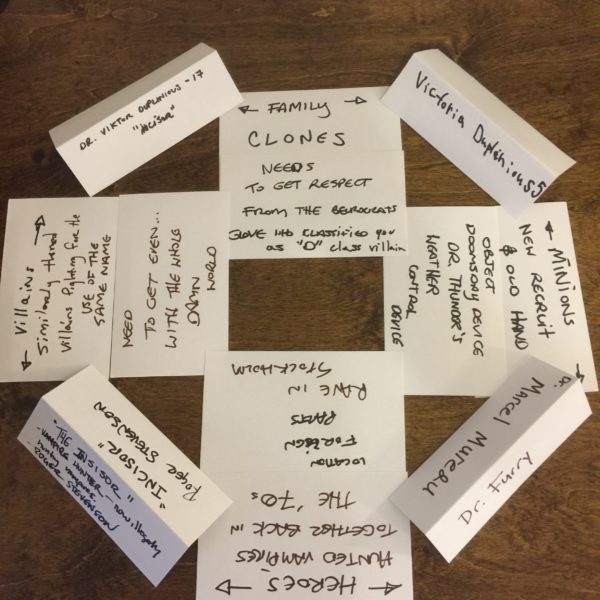 DR. VIKTOR DUPLINIOUS - 17
"INCISOR"
Victoria Duplinious 5
FAMILY
CLONES
NEEDS
TO GET RESPECT
FROM THE BEUROCRATS
CLASSIFIED YOU
as "D" class villain
Villains
Similarly themed
villains fighting for the
USE OF THE
SAME NAME
NEED
TO GET EVEN...
WITH THE WHOLE
DAMN
WORLD
MINIONS
NEW RECRUIT
& OLD HAND
OBJECT
DOOMSDAY DEVICE
DR. THUNDER'S
WEATHER
CONTROL
DEVICE
HEROES
HUNTED VAMPIRES
TOGETHER BACK IN
THE '70s
LOCATION
FOREIGN
PARTS
RAVE IN
STOCKHOLM
ROGER STEVENSON
"INCISOR"
"THE INSISOR"
-VAMPIRE HUNTER- now illegally
hunting vampires
ROGER STEVENSON
Dr.
Marcel Mureau
Dr. Furry